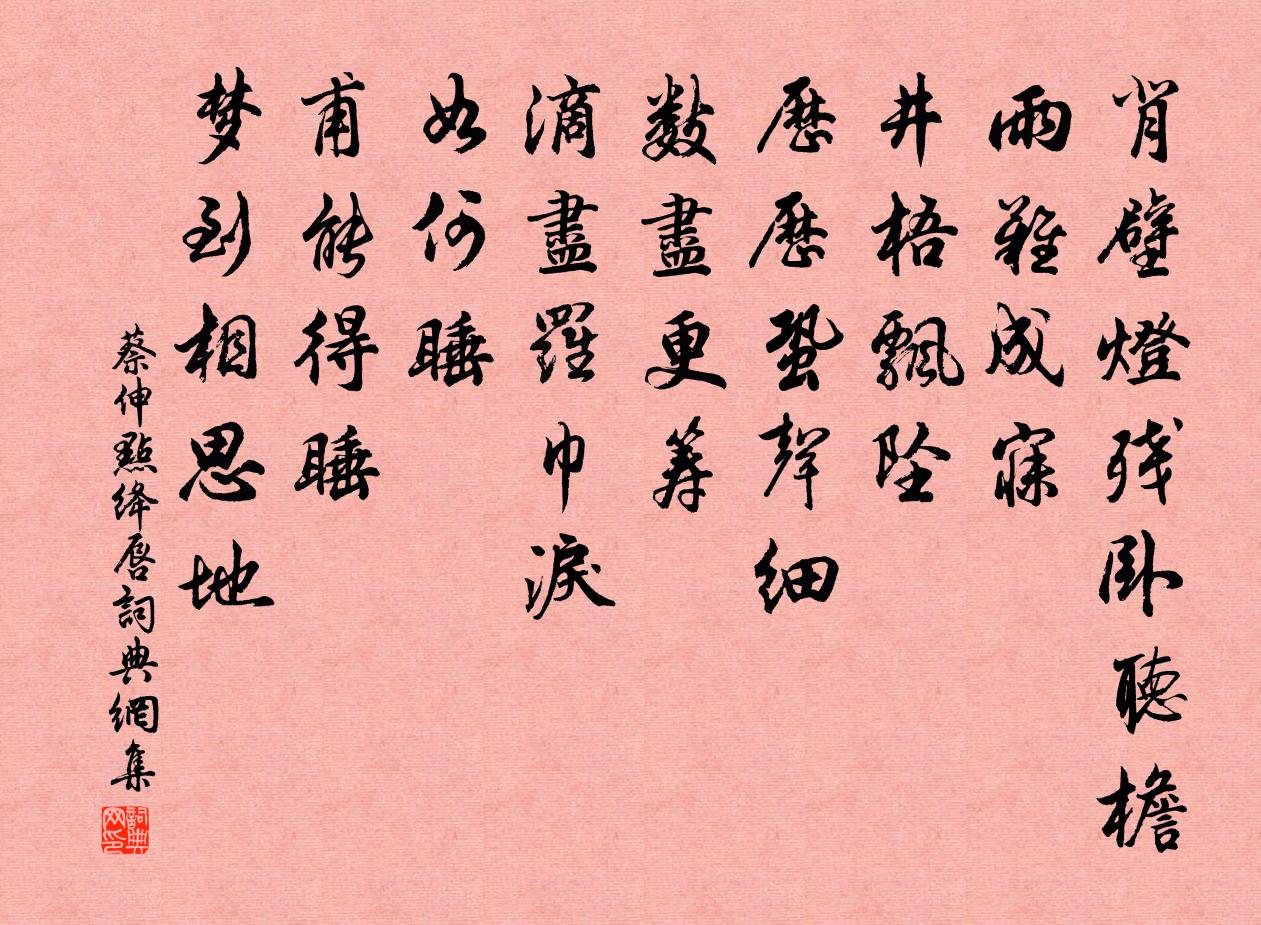 背壁燈残卧聽檐
雨難成寐
井梧飄坠
歷歷蛩聲細
數盡更筹
滴盡羅巾淚
如何睡
甫能得睡
梦到相思地
蔡伸點绛唇詞典網集
詞典网印